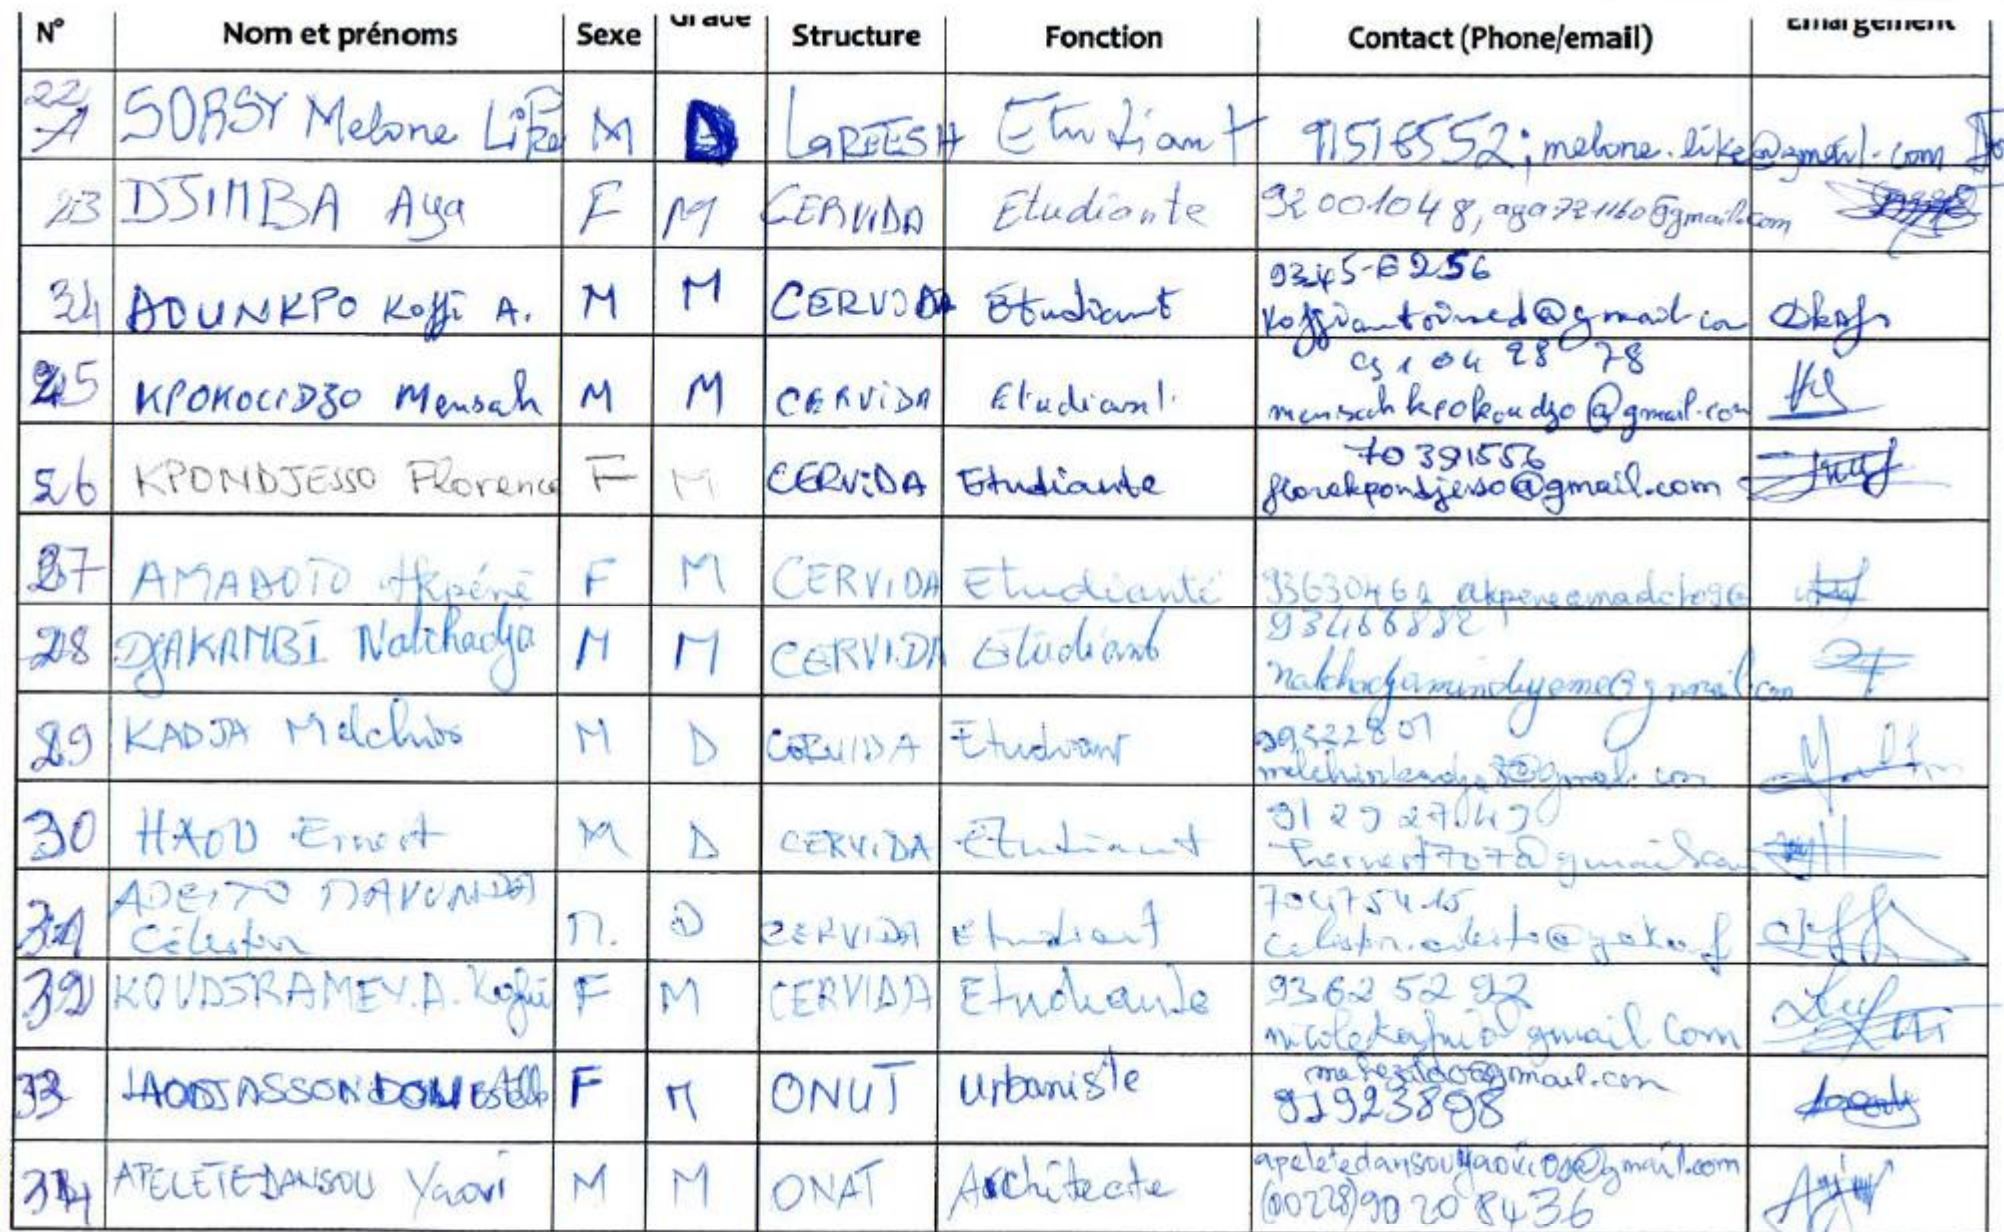 N° Nom et prénoms Sexe Grade Structure Fonction Contact (Phone/email) Emargement
22 SORSY Melone Like M D LaREESH Etudiant 91516552; melone.like@gmail.com
23 DJIMBA Aya F M CERVIDA Etudiante 92001048, aya721160@gmail.com
24 ADUNKPO Koffi A. M M CERVIDA Etudiant 9345-6256
koffiantoined@gmail.co
25 KPOKOUDZO Mensah M M CERVIDA Etudiant 91 04 28 78
mensahkpokoudzo@gmail.com
26 KPONDJESSO Florence F M CERVIDA Etudiante 70391556
florekpondjesso@gmail.com
27 AMADOTO Akpéné F M CERVIDA Etudiante 93630462
28 DJAKAMBI Natchadja M M CERVIDA Etudiant 93466882
29 KADJA Melchior M D CERVIDA Etudiant
30 HAOU Ernest M D CERVIDA Etudiant 91292749
31 ADEITO MAVUNDA
Célestin M. D CERVIDA Etudiant 70475415
32 KOUDJRAMEY.A. Kafui F M CERVIDA Etudiante 93625292
nicolekafui@gmail.com
33 F M ONUT Urbaniste
91923898
34 APELETE-DANSOU Yaovi M M ONAT Architecte apeletedansouyaovi09@gmail.com
(00228)90208436